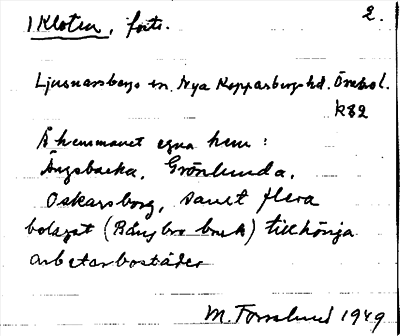 1 Kloten, forts. 2.
Ljusnarsbergs sn. Nya Kopparbergs hd. Örebro l.
k32
Å hemmanet egna hem:
Ängsbacka, Grönlunda,
Oskarsborg, samt flera
bolaget (Bångbro bruk) tillhöriga
arbetarbostäder
M. Tornlund 1949